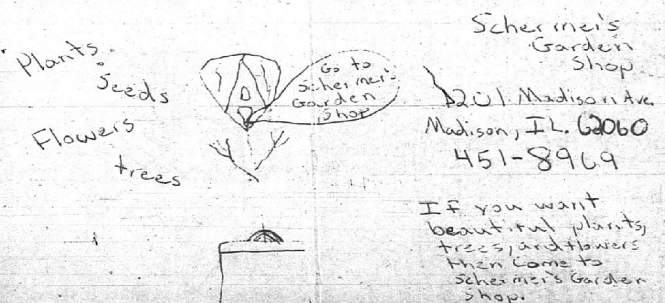 Plants
Seeds
Flowers
trees
Go to
Schermer's
Garden
Shop
Schermer's
Garden
Shop
1201 Madison Ave.
Madison, IL. 62060
451-8969
If you want
beautiful plants,
trees, and flowers
then come to
Schermer's Garden
Shop.